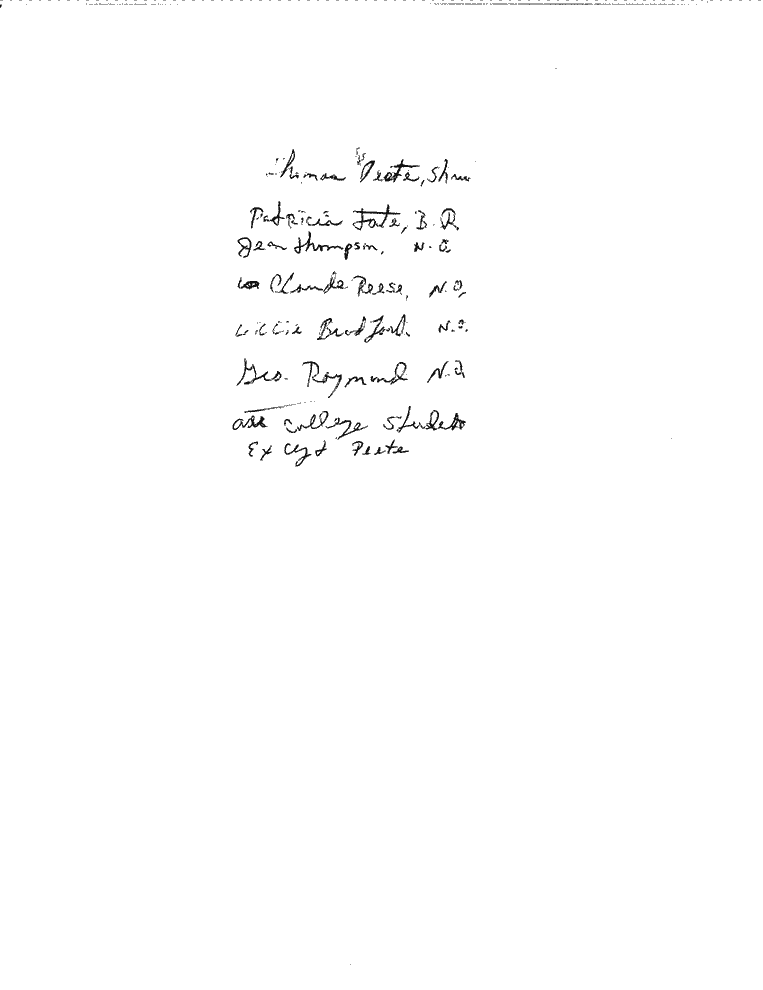 Thomas Peete, Shrev
Patricia Tate, B.R
Jean Thompson, N.O
Claude Reese, N.O,
Willie Bradford. N.O.
Geo. Raymond N.O
all college students
Except Peete